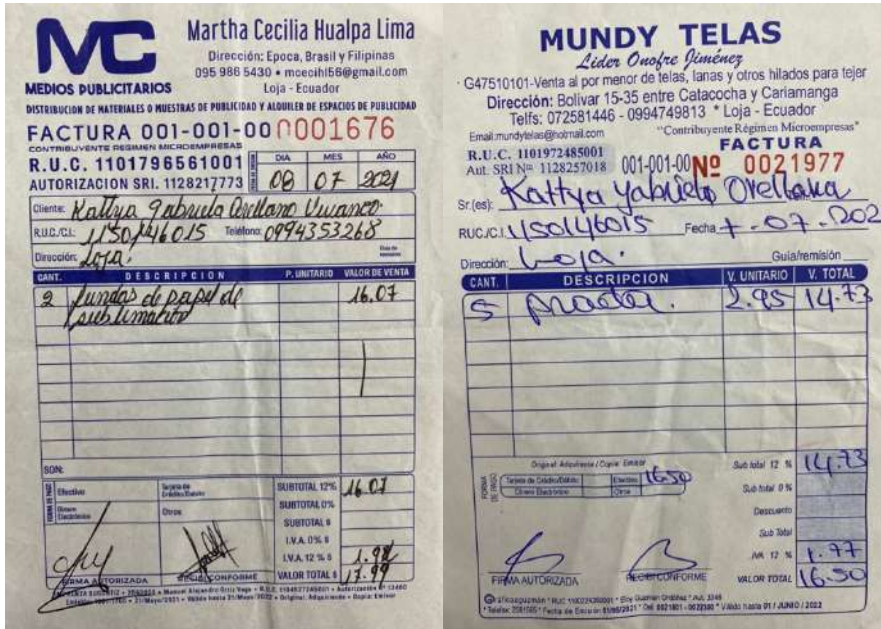 MC
MEDIOS PUBLICITARIOS
Martha Cecilia Hualpa Lima
Dirección: Epoca, Brasil y Filipinas
095 986 5430 • mcecihl56@gmail.com
Loja - Ecuador
DISTRIBUCION DE MATERIALES O MUESTRAS DE PUBLICIDAD Y ALQUILER DE ESPACIOS DE PUBLICIDAD
FACTURA 001-001-00 0001676
CONTRIBUYENTE REGIMEN MICROEMPRESAS
R.U.C. 1101796561001
AUTORIZACION SRI. 1128217773
DIA MES AÑO
08 07 2021
Cliente: Kattya Gabriela Orellana Vivanco.
R.U.C./C.I.: 1150146015 Teléfono: 0994353268
Dirección: Loja.
CANT. DESCRIPCION P. UNITARIO VALOR DE VENTA
2 fundas de papel de 16.07
sublimación
SON:
FORMA DE PAGO
Efectivo
Tarjeta de Crédito/Débito
Dinero Electrónico
Otros
SUBTOTAL 12% 16.07
SUBTOTAL 0%
SUBTOTAL $
I.V.A. 0% $
I.V.A. 12 % $ 1.92
VALOR TOTAL $ 17.99
FIRMA AUTORIZADA
RECIBI CONFORME
MUNDY TELAS
Lider Onofre Jiménez
G47510101-Venta al por menor de telas, lanas y otros hilados para tejer
Dirección: Bolivar 15-35 entre Catacocha y Cariamanga
Telfs: 072581446 - 0994749813 * Loja - Ecuador
Email:mundytelas@hotmail.com
"Contribuyente Régimen Microempresas"
FACTURA
R.U.C. 1101972485001
Aut. SRI Nº 1128257018
001-001-00 Nº 0021977
Sr.(es): Kattya Gabriela Orellana
RUC./C.I. 1150146015 Fecha 7-07-202
Dirección: Loja. Guia/remisión
CANT. DESCRIPCION V. UNITARIO V. TOTAL
5 prada. 2.95 14.73
Original: Adquirente / Copia: Emisor
FORMA DE PAGO
Tarjeta de Crédito/Débito
Efectivo 16.50
Dinero Electrónico
Otros
Sub total 12 % 14.73
Sub total 0 %
Descuento
Sub Total
IVA 12 % 1.77
VALOR TOTAL 16.50
FIRMA AUTORIZADA
RECIBI CONFORME